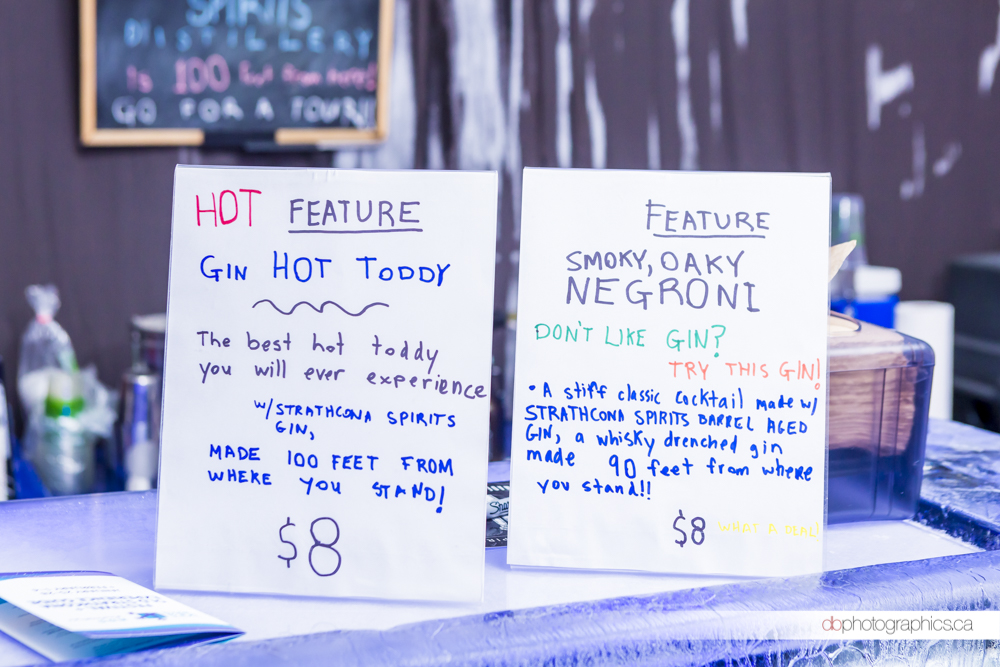 SPIRITS
DISTILLERY
Is 100 feet from here!
GO FOR A TOUR!
HOT FEATURE
GIN HOT TODDY
The best hot toddy
you will ever experience
W/STRATHCONA SPIRITS
GIN,
MADE 100 FEET FROM
WHERE YOU STAND!
$8
FEATURE
SMOKY, OAKY
NEGRONI
DON'T LIKE GIN?
TRY THIS GIN!
• A stiff classic cocktail made w/
STRATHCONA SPIRITS BARREL AGED
GIN, a whisky drenched gin
made 90 feet from where
you stand!!
$8 WHAT A DEAL!
dbphotographics.ca